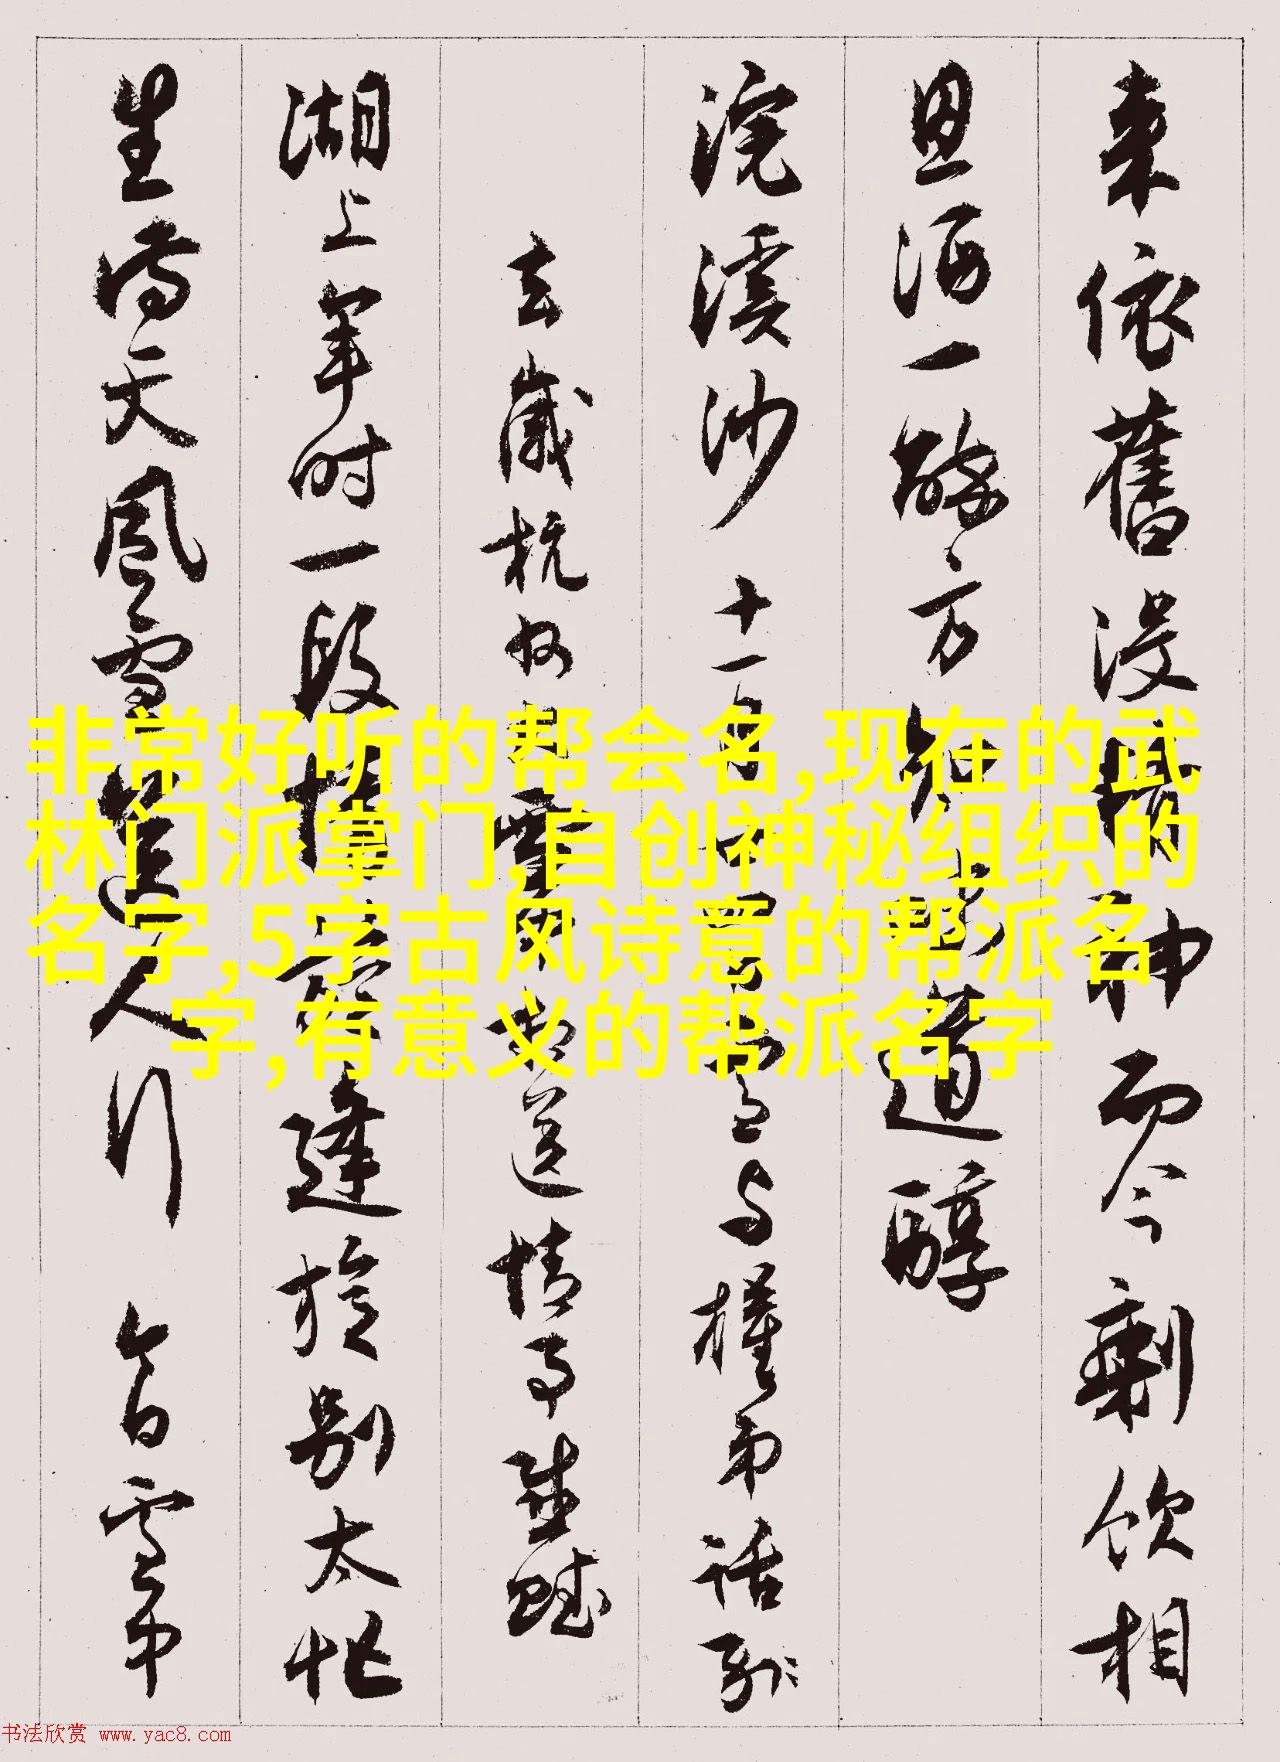 来依舊没情神而今剩飲相
思酒一醉方知道醇
浣溪沙十一月與權弟話别
去歲杭州相送情事
湖上年时一段情逢旋别太忙
生憎天風雪人行
非常好听的帮会名,现在的武
林门派掌门,自创神秘组织的
名字,5字古风诗意的帮派名
字,有意义的帮派名字
书法欣赏 www.yac8.com